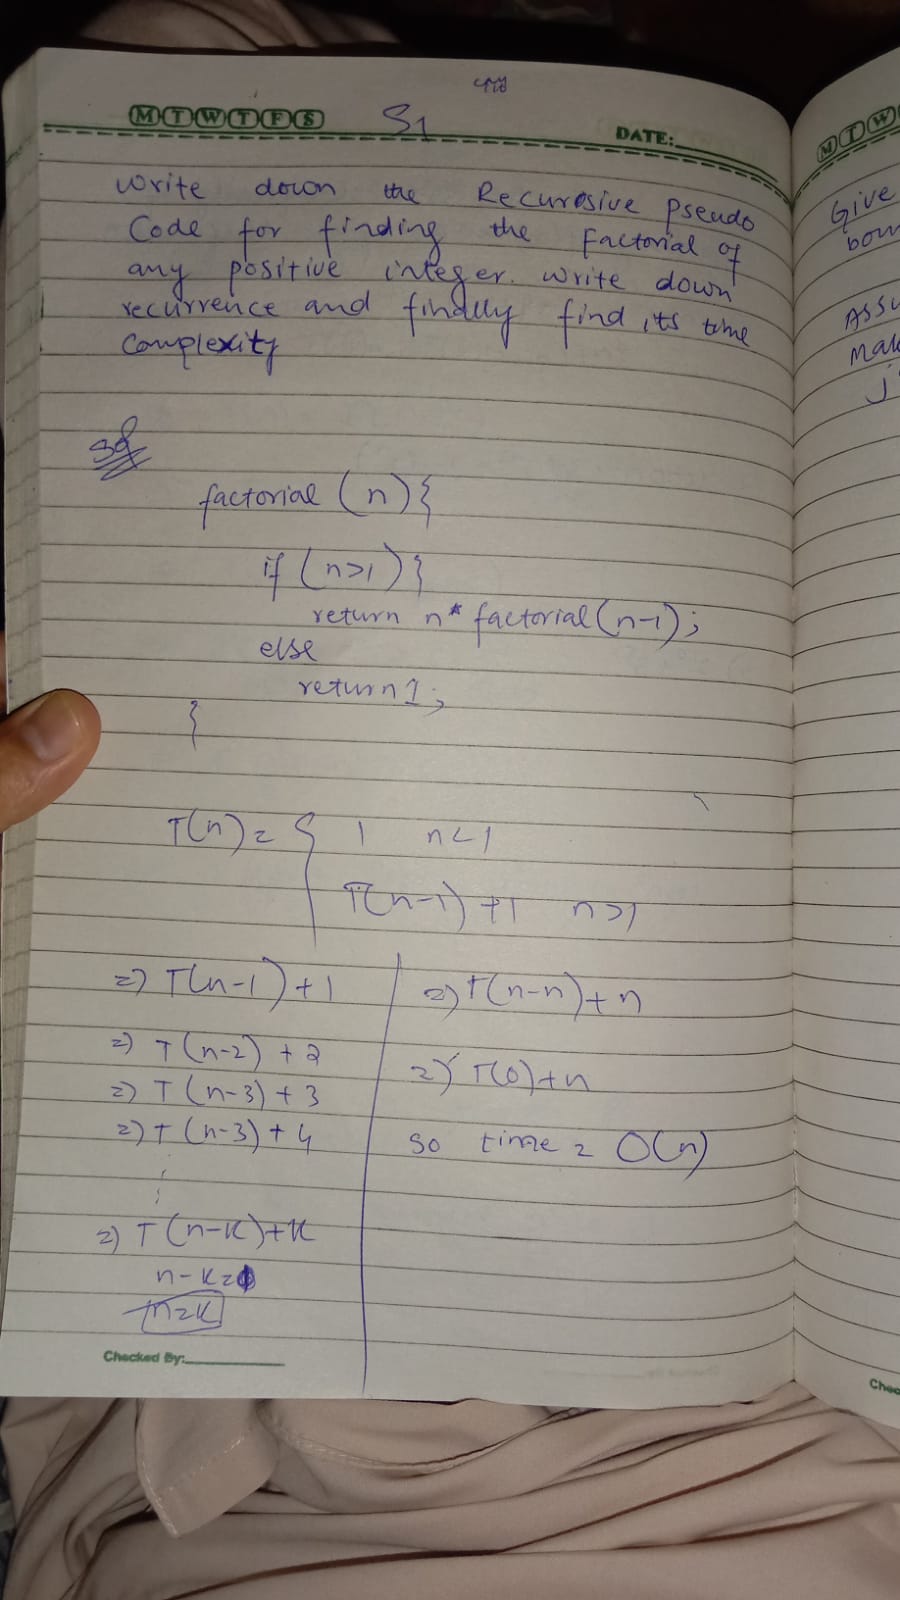 M T W T F S
S1
DATE:
write down the Recursive pseudo
Code for finding the factorial of
any positive integer. write down
recurrence and finally find its time
Complexity
Sol
factorial (n){
if (n>1){
return n* factorial(n-1);
else
return 1;
}
T(n) = { 1 n<1
T(n-1) +1 n>1
=) T(n-1)+1
=) T(n-2) + 2
=) T(n-3) + 3
=) T(n-3) + 4
=) T(n-K)+K
n-K=0
n=K
=) T(n-n)+n
=) T(0)+n
so time = O(n)
Checked By:
M T W
Give